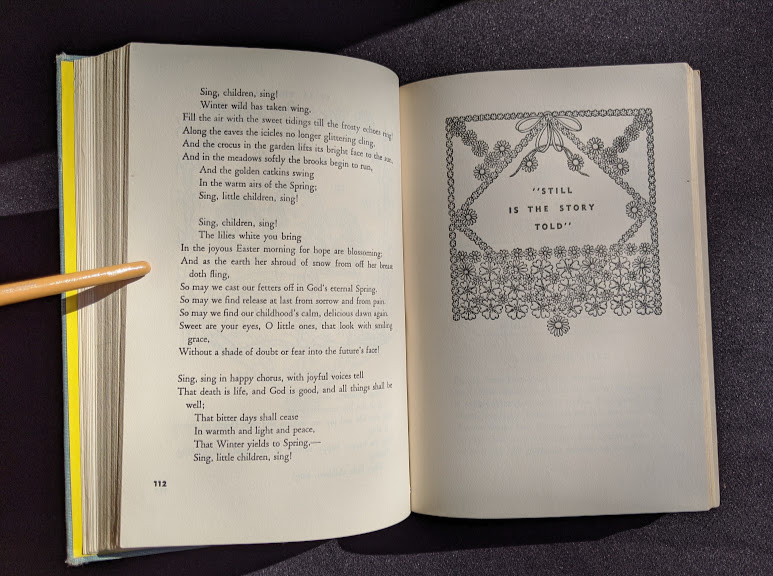 Sing, children, sing!
Winter wild has taken wing.
Fill the air with the sweet tidings till the frosty echoes ring!
Along the eaves the icicles no longer glittering cling,
And the crocus in the garden lifts its bright face to the sun,
And in the meadows softly the brooks begin to run,
And the golden catkins swing
In the warm airs of the Spring;
Sing, little children, sing!
Sing, children, sing!
The lilies white you bring
In the joyous Easter morning for hope are blossoming;
And as the earth her shroud of snow from off her breast
doth fling,
So may we cast our fetters off in God's eternal Spring.
So may we find release at last from sorrow and from pain.
So may we find our childhood's calm, delicious dawn again.
Sweet are your eyes, O little ones, that look with smiling
grace,
Without a shade of doubt or fear into the future's face!
Sing, sing in happy chorus, with joyful voices tell
That death is life, and God is good, and all things shall be
well;
That bitter days shall cease
In warmth and light and peace,
That Winter yields to Spring,—
Sing, little children, sing!
112
"STILL
IS THE STORY
TOLD"